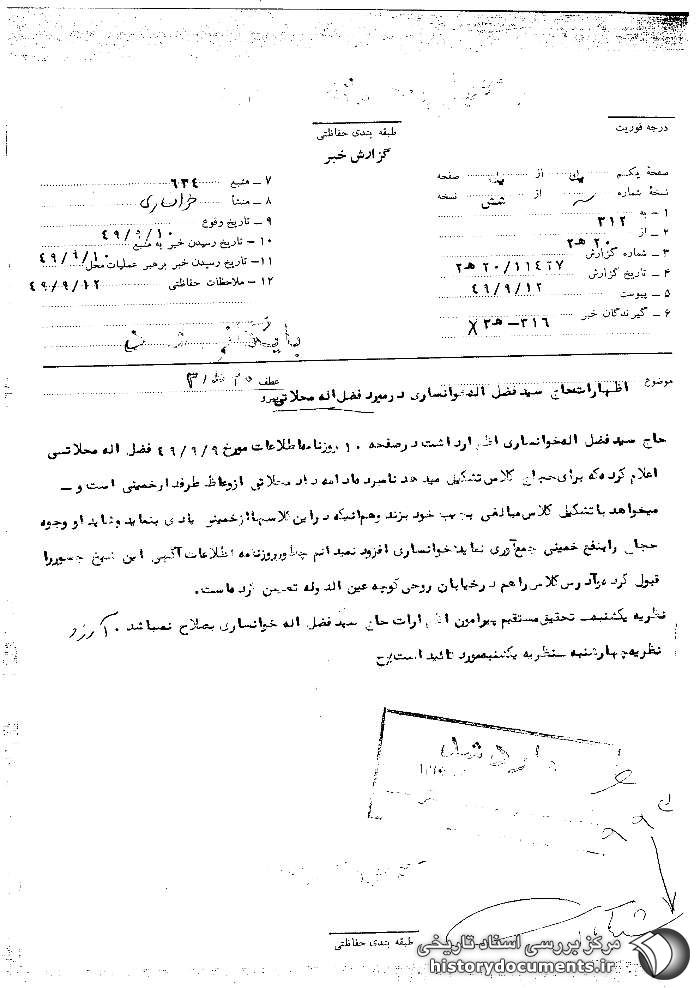 درجه فوریت
طبقه بندی حفاظتی
گزارش خبر
صفحهٔ یکم از صفحه
نسخهٔ شماره از شش نسخه
۱ – به ۳۱۲
۲ – از ۲۰ هـ۲
۳ – شماره گزارش ۲۰/۱۱۴۲۷ هـ۲
۴ – تاریخ گزارش ۴۹/۹/۱۲
۵ – پیوست
۶ – گیرندگان خبر ۳۱۶–
۷ – منبع ۶۳۴
۸ – منشأ
۹ – تاریخ وقوع
۱۰ – تاریخ رسیدن خبر به منبع ۴۹/۹/۱۰
۱۱– تاریخ رسیدن خبر برهبر عملیات محل ۴۹/۹/۱۰
۱۲ – ملاحظات حفاظتی ۴۹/۹/۱۲
عطف
موضوع اظهارات حاج سید فضل اله خوانساری در مورد فضل اله محلاتی
حاج سید فضل اله خوانساری اظهار داشت در صفحه ۱۰ روزنامه اطلاعات مورخ ۴۹/۹/۹ فضل اله محلاتی
اعلام کرده که برای حجاج کلاس تشکیل میدهد نامبرده ادامه داد محلاتی از وعاظ طرفدار خمینی است و –
میخواهد با تشکیل کلاس مبالغی بجیب خود بزند و هم اینکه در این کلاسها از خمینی یادی بنماید و شاید او وجوه
حجاج را بنفع خمینی جمع آوری نماید خوانساری افزود نمیدانم چطور روزنامه اطلاعات آگهی این شیخ جسور را
قبول کرده و آدرس کلاس را هم در خیابان روحی کوچه عین الدوله تعیین کرده است.
نظریه یکشنبه – تحقیق مستقیم پیرامون اظهارات حاج سید فضل اله خوانساری بصلاح نمیباشد.
نظریه چهارشنبه – نظریه یکشنبه مورد تائید است.
طبقه بندی حفاظتی
مرکز بررسی اسناد تاریخی
historydocuments.ir